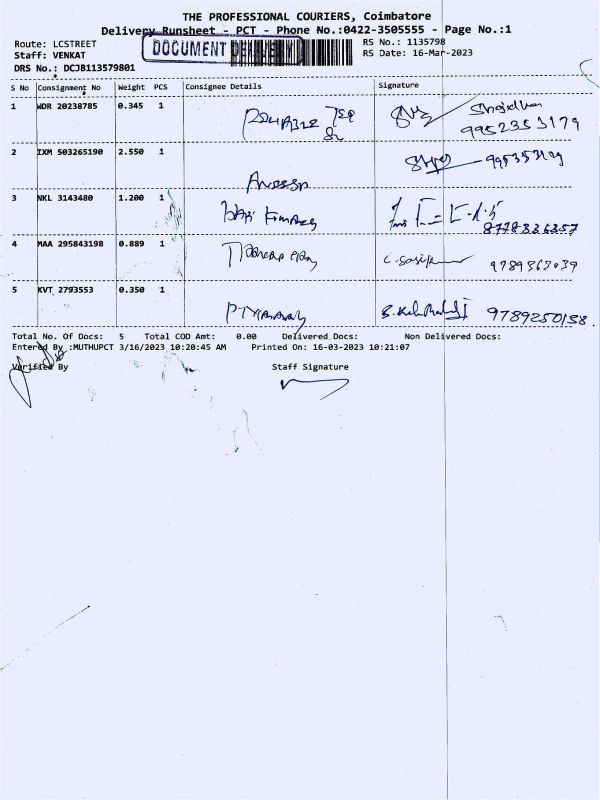 THE PROFESSIONAL COURIERS, Coimbatore
Delivery Runsheet - PCT - Phone No.:0422-3505555 - Page No.:1
Route: LCSTREET
DOCUMENT DELIVERY
RS No.: 1135798
Staff: VENKAT
RS Date: 16-Mar-2023
DRS No.: DCJB113579801
S No Consignment No Weight PCS Consignee Details Signature
1 WDR 20238785 0.345 1
9952353179
2 IXM 503265190 2.550 1
995353129
3 NKL 3143480 1.200 1
8778336357
4 MAA 295843198 0.889 1
9789363039
5 KVT 2793553 0.350 1
9789250158
Total No. Of Docs: 5 Total COD Amt: 0.00 Delivered Docs: Non Delivered Docs:
Entered By :MUTHUPCT 3/16/2023 10:20:45 AM Printed On: 16-03-2023 10:21:07
Verified By Staff Signature